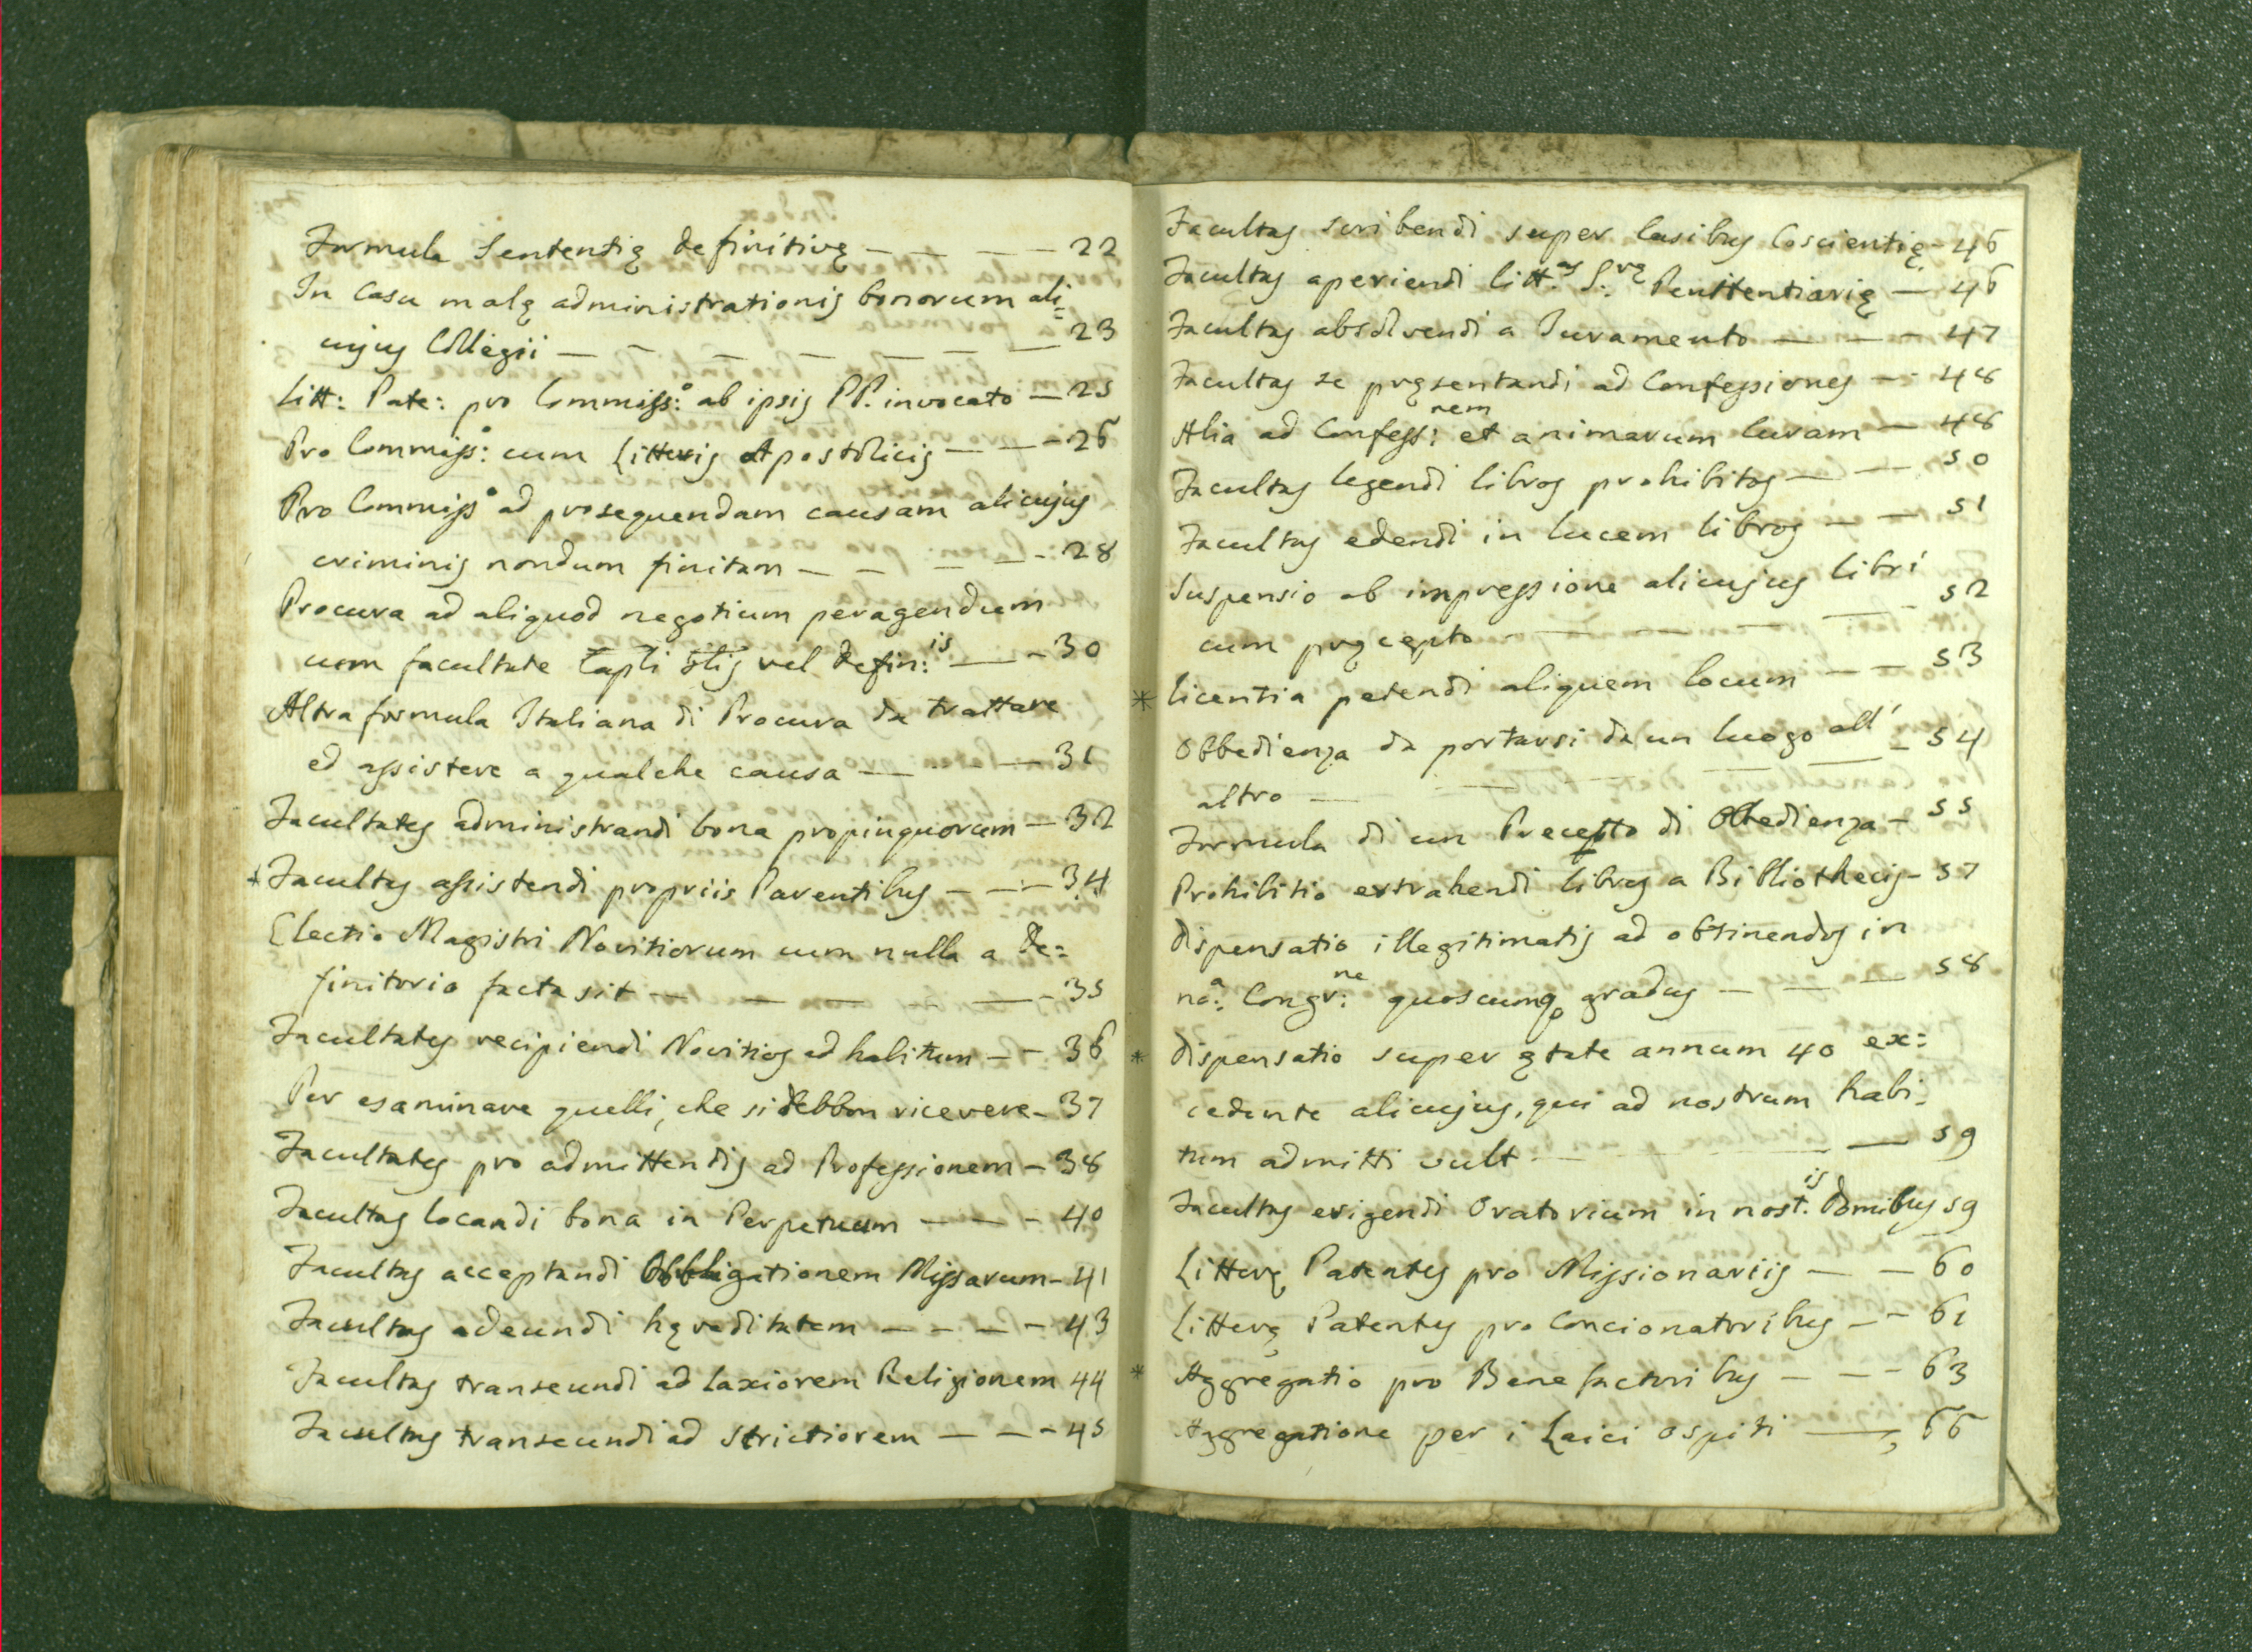 Formula Sententię definitivę — — — — 22
In Casu malę administrationis bonorum ali=
cujus Collegii — — — — — — 23
Litt: Pate: pro Commiss:° ab ipsis PP. invocato — 25
Pro Commiss:° cum Litteris Apostolicis — — — 26
Pro Commiss° ad prosequendam causam alicujus
criminis nondum finitam — — — — 28
Procura ad aliquod negotium peragendum
cum facultate Capli Glis vel Defin:is — — 30
Altra formula Italiana di Procura da trattare
ed assistere a qualche causa — — — 31
Facultates administrandi bona propinquorum — 32
* Facultas assistendi propriis Parentibus — — — 34
Electio Magistri Novitiorum cum nulla a De=
finitorio facta sit — — — — — 35
Facultates recipiendi Novitios ad habitum — — 36
Per esaminare quelli, che si debbon ricevere — 37
Facultates pro admittendis ad Professionem — 38
Facultas locandi bona in Perpetuum — — — 40
Facultas acceptandi Obbligationem Missarum — 41
Facultas adeundi hęreditatem — — — — 43
Facultas transeundi ad laxiorem Religionem 44
Facultas transeundi ad strictiorem — — — 45
Facultas scribendi super Casibus Coscientię — 46
Facultas aperiendi litt:as S:rę Penitentiarię — 46
Facultas absolvendi a Juramento — — — 47
Facultas se pręsentandi ad Confessiones — — 48
Alia ad Confess:nem et animarum Curam — 48
Facultas legendi libros prohibitos — — 50
Facultas edendi in lucem libros — — 51
Suspensio ab impressione alicujus libri
cum pręcepto — — — — — 52
* Licentia petendi aliquem locum — — 53
Obbedienza da portarsi da un luogo all'
altro — — — — — 54
Formula di un Precetto di Obbedienza — 55
Prohibitio extrahendi libros a Bibliothecis — 57
Dispensatio illegitimatis ad obtinendos in
no:a Congr:ne quoscumq gradus — — — 58
* Dispensatio super ętate annum 40 ex=
cedente alicujus, qui ad nostrum habi=
tum admitti vult — — — — 59
Facultas erigendi Oratorium in nost:is Domibus 59
Litterę Patentes pro Missionariis — — 60
Litterę Patentes pro Concionatoribus — — 61
* Aggregatio pro Benefactoribus — — — 63
Aggregatione per i Laici ospiti — — 66